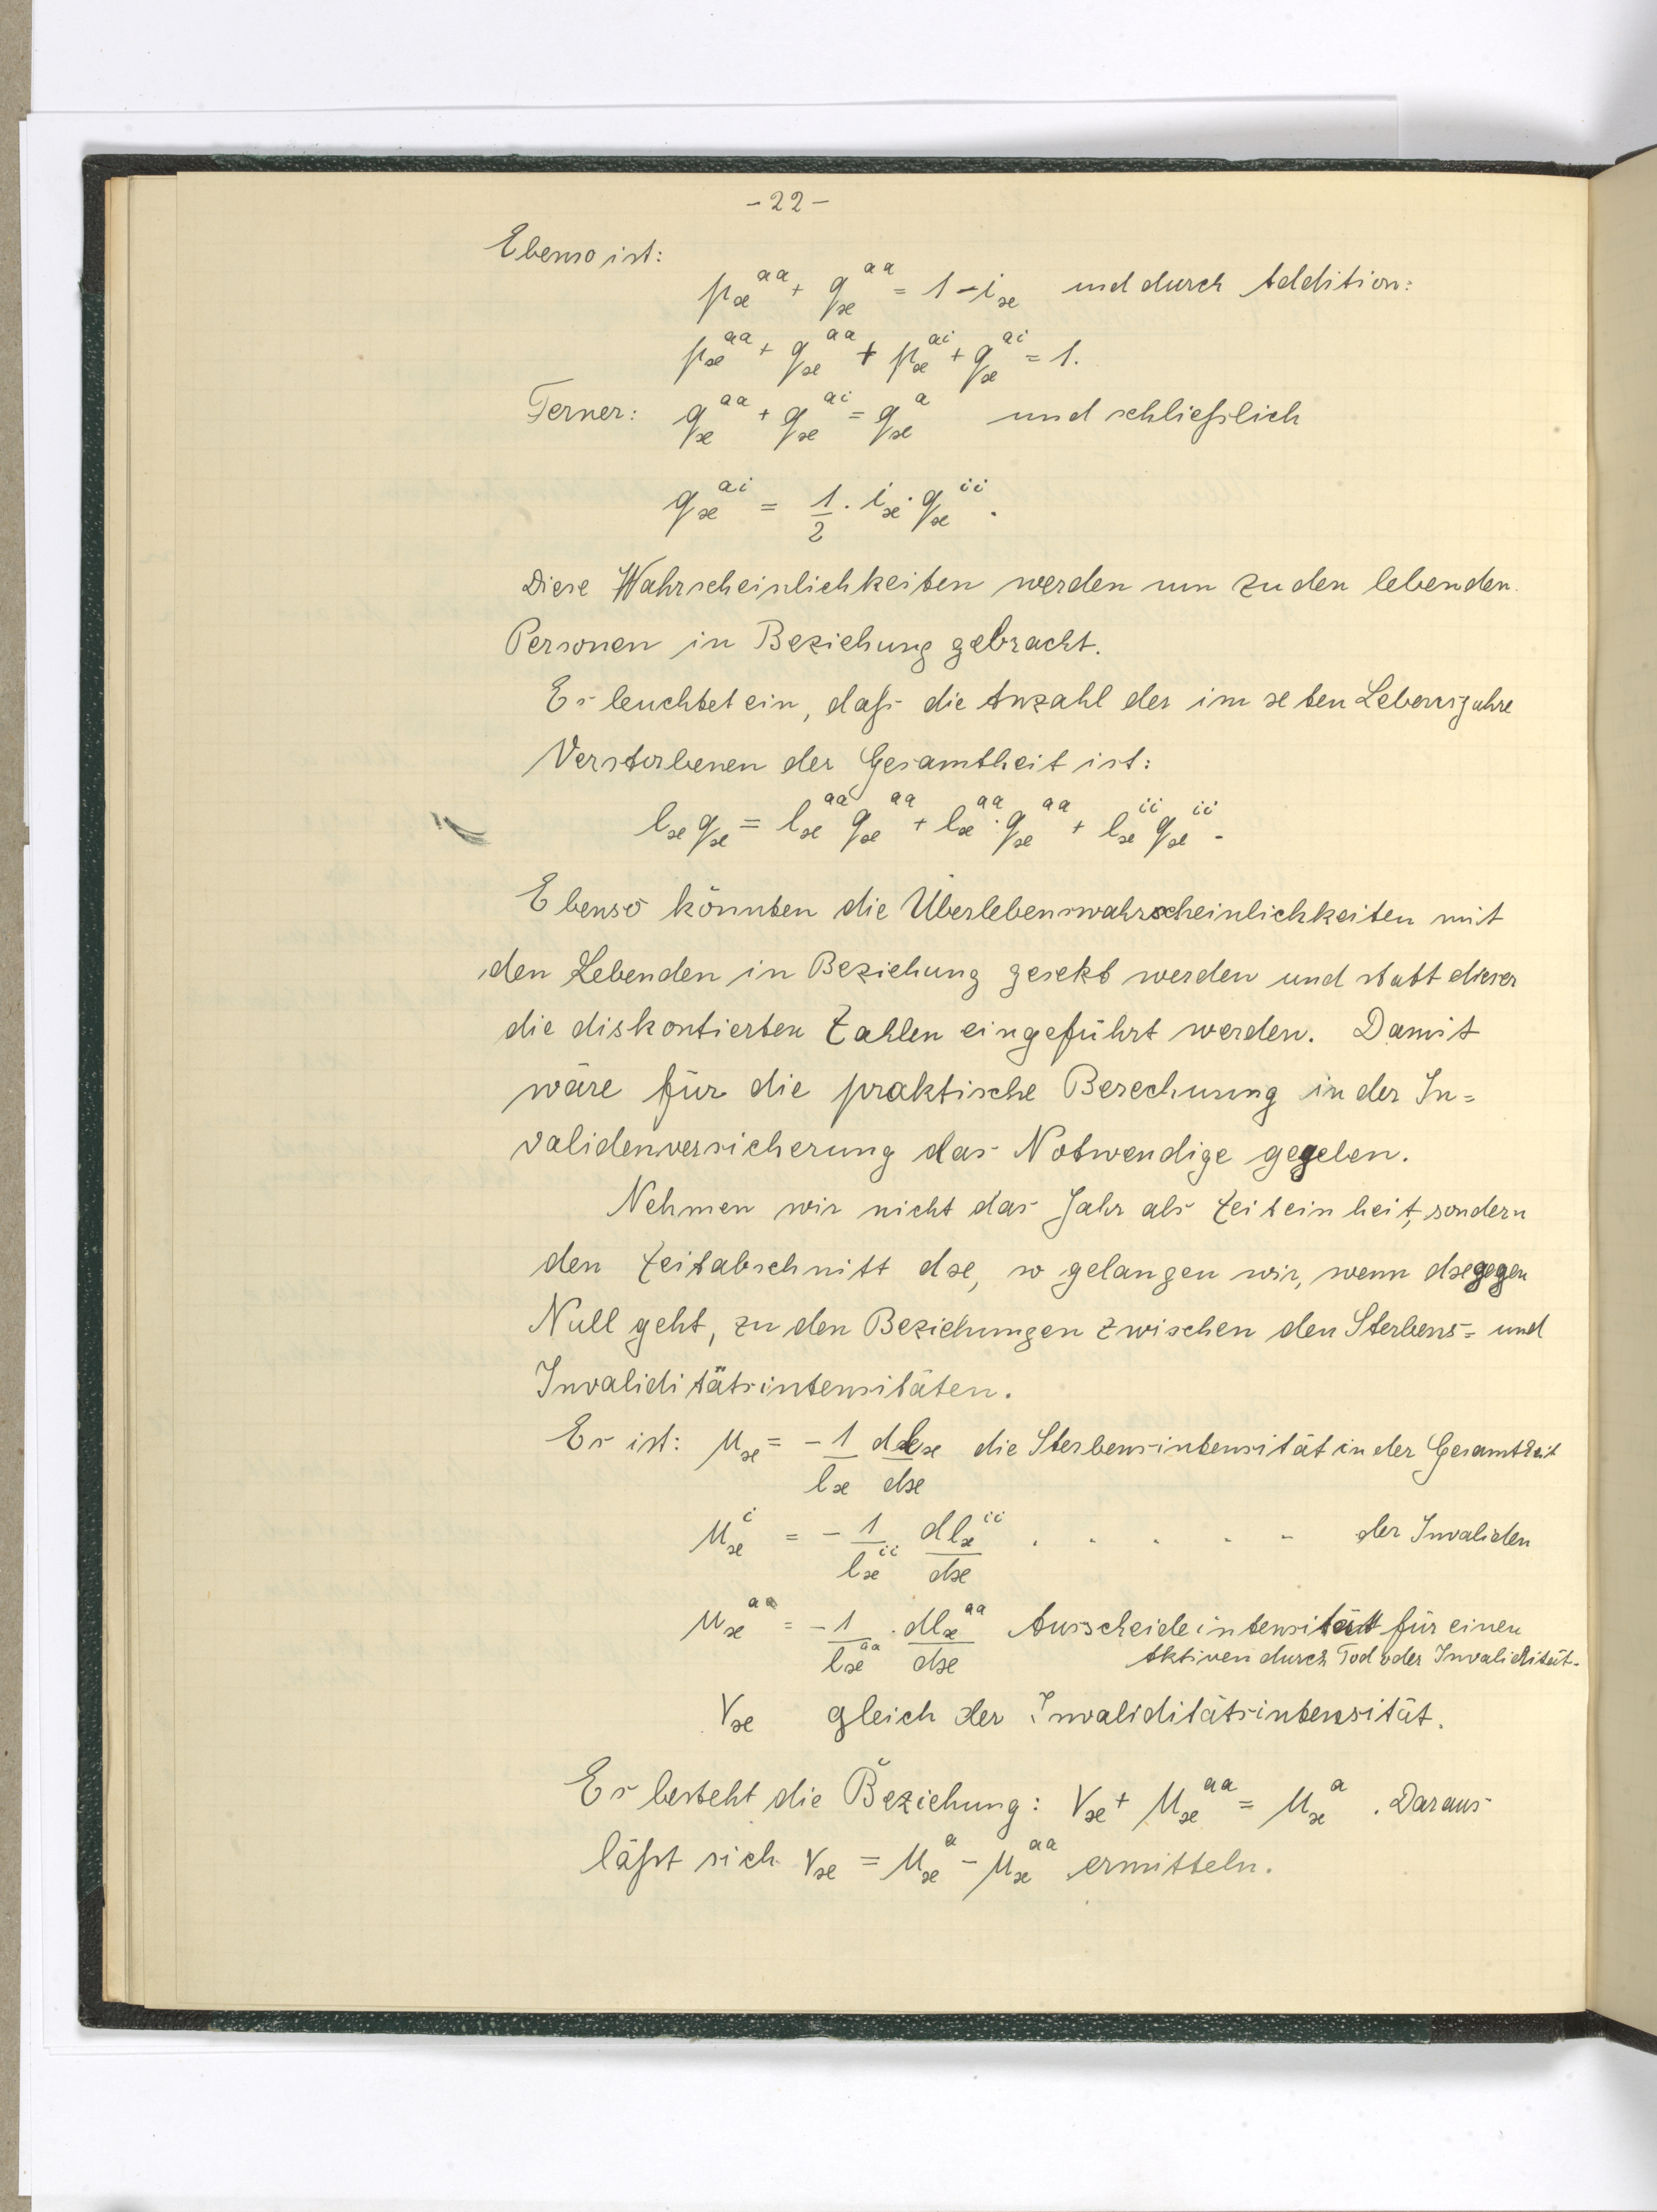 -22-
Ebenso ist:
pₓᵃᵃ + qₓᵃᵃ = 1 - iₓ und durch Addition:
pₓᵃᵃ + qₓᵃᵃ + pₓᵃⁱ + qₓᵃⁱ = 1.
Ferner: qₓᵃᵃ + qₓᵃⁱ = qₓᵃ und schließlich
qₓᵃⁱ = 1/2 · iₓ · qₓⁱⁱ.
Diese Wahrscheinlichkeiten werden nun zu den lebenden
Personen in Beziehung gebracht.
Es leuchtet ein, daß die Anzahl der im x ten Lebensjahre
Verstorbenen der Gesamtheit ist:
lₓ qₓ = lₓᵃᵃ qₓᵃᵃ + lₓᵃᵃ · qₓᵃᵃ + lₓⁱⁱ qₓⁱⁱ.
Ebenso könnten die Überlebenswahrscheinlichkeiten mit
den Lebenden in Beziehung gesetzt werden und statt dieser
die diskontierten Zahlen eingeführt werden. Damit
wäre für die praktische Berechnung in der In=
validenversicherung das Notwendige gegeben.
Nehmen wir nicht das Jahr als Zeiteinheit, sondern
den Zeitabschnitt dx, so gelangen wir, wenn dx gegen
Null geht, zu den Beziehungen zwischen den Sterbens= und
Invaliditätsintensitäten.
Es ist: μₓ = - 1/lₓ dlₓ/dx die Sterbensintensität in der Gesamtheit
μₓⁱ = - 1/lₓⁱⁱ dlₓⁱⁱ/dx . . . . - der Invaliden
μₓᵃᵃ = - 1/lₓᵃᵃ · dlₓᵃᵃ/dx Ausscheideintensität für einen
Aktiven durch Tod oder Invalidität.
νₓ gleich der Invaliditätsintensität.
Es besteht die Beziehung: νₓ + μₓᵃᵃ = μₓᵃ. Daraus
läßt sich νₓ = μₓᵃ - μₓᵃᵃ ermitteln.